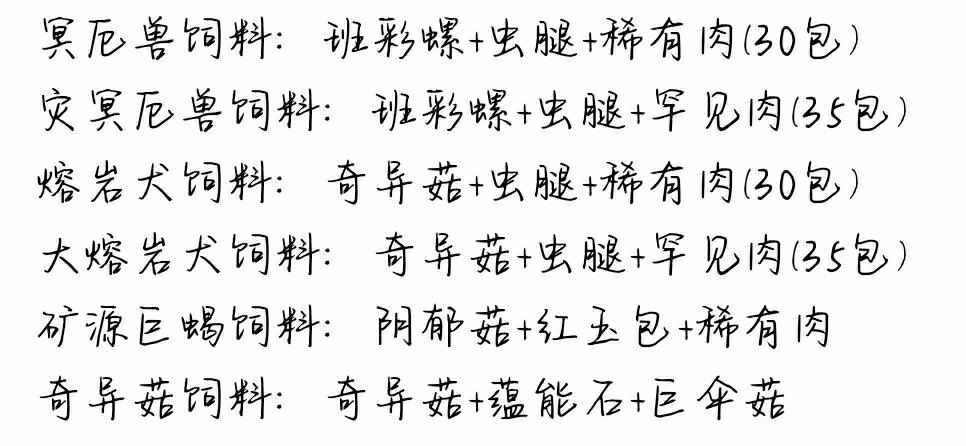 冥厄兽饲料: 班彩螺+虫腿+稀有肉(30包)
灾冥厄兽饲料: 班彩螺+虫腿+罕见肉(35包)
熔岩犬饲料: 奇异菇+虫腿+稀有肉(30包)
大熔岩犬饲料: 奇异菇+虫腿+罕见肉(35包)
矿源巨蝎饲料: 阴郁菇+红玉包+稀有肉
奇异菇饲料: 奇异菇+蕴能石+巨伞菇